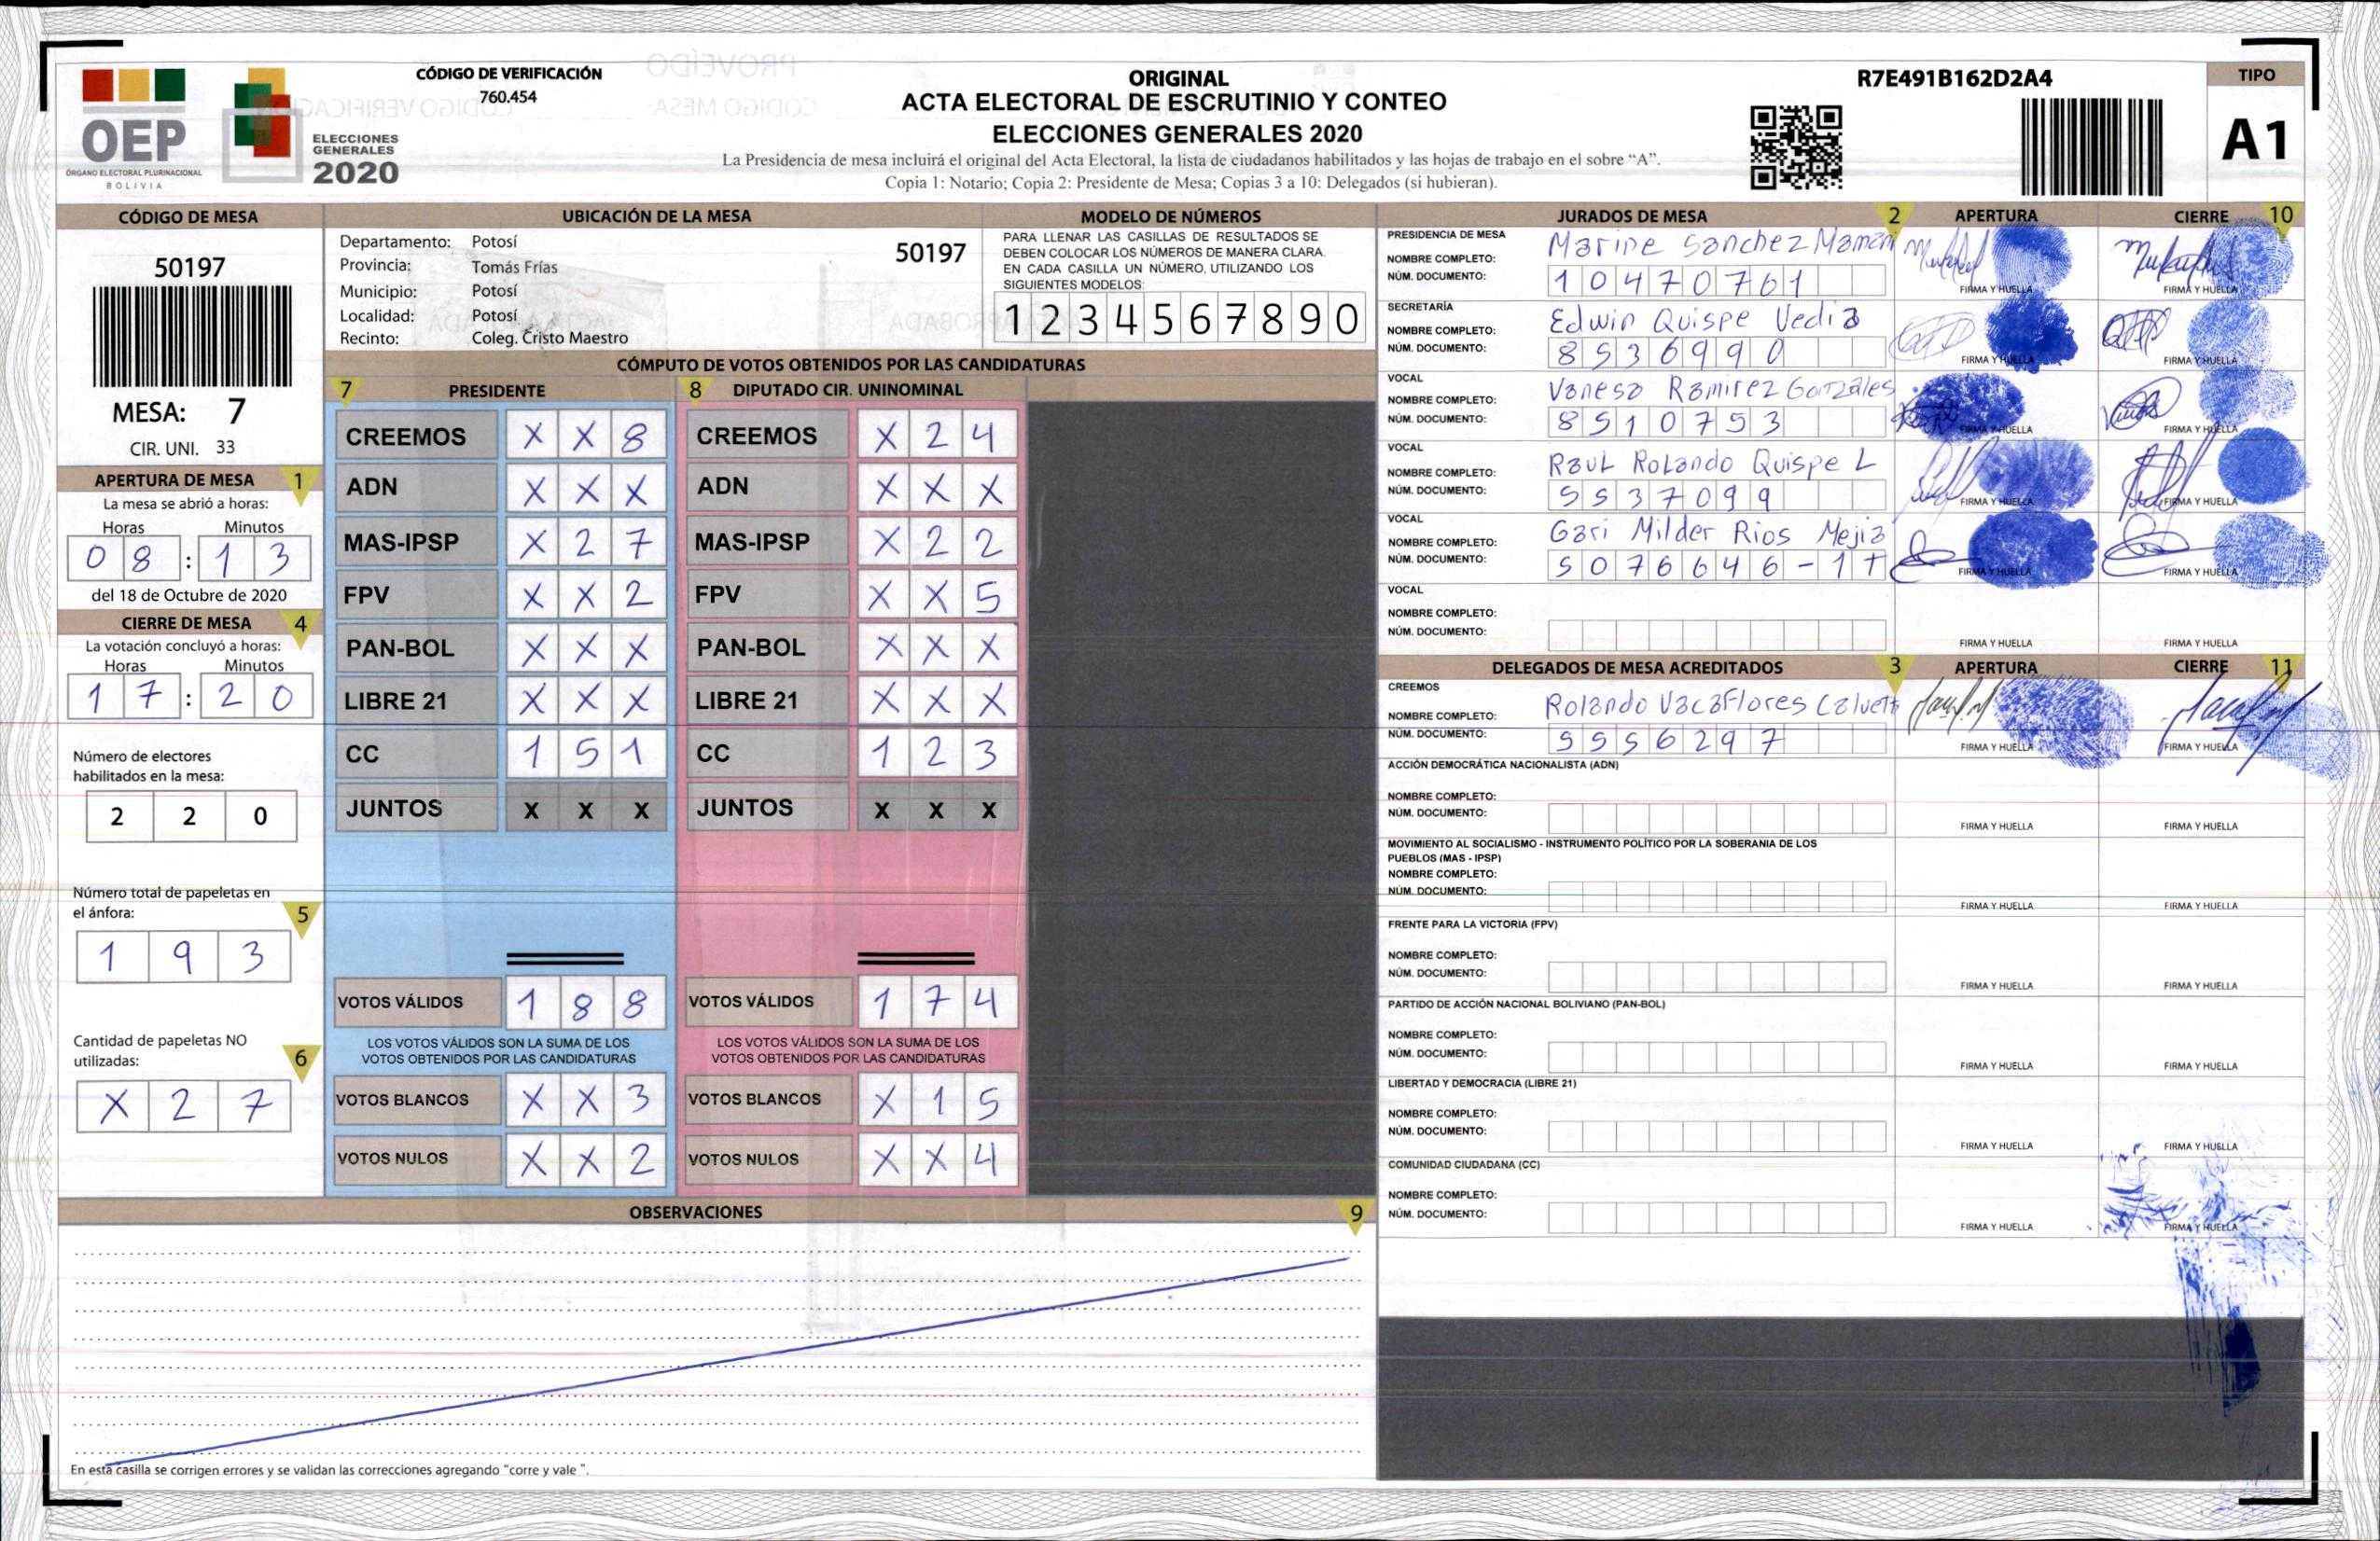 CÓDIGO DE VERIFICACIÓN
760.454
OEP
ÓRGANO ELECTORAL PLURINACIONAL
BOLIVIA
ELECCIONES
GENERALES
2020
ORIGINAL
ACTA ELECTORAL DE ESCRUTINIO Y CONTEO
ELECCIONES GENERALES 2020
La Presidencia de mesa incluirá el original del Acta Electoral, la lista de ciudadanos habilitados y las hojas de trabajo en el sobre “A”.
Copia 1: Notario; Copia 2: Presidente de Mesa; Copias 3 a 10: Delegados (si hubieran).
R7E491B162D2A4
TIPO
A1
CÓDIGO DE MESA
50197
MESA: 7
CIR. UNI. 33
APERTURA DE MESA 1
La mesa se abrió a horas:
Horas Minutos
0 8 : 1 3
del 18 de Octubre de 2020
CIERRE DE MESA 4
La votación concluyó a horas:
Horas Minutos
1 7 : 2 0
Número de electores
habilitados en la mesa:
2 2 0
Número total de papeletas en
el ánfora: 5
1 9 3
Cantidad de papeletas NO
utilizadas: 6
X 2 7
UBICACIÓN DE LA MESA
Departamento: Potosí 50197
Provincia: Tomás Frías
Municipio: Potosí
Localidad: Potosí
Recinto: Coleg. Cristo Maestro
MODELO DE NÚMEROS
PARA LLENAR LAS CASILLAS DE RESULTADOS SE
DEBEN COLOCAR LOS NÚMEROS DE MANERA CLARA.
EN CADA CASILLA UN NÚMERO, UTILIZANDO LOS
SIGUIENTES MODELOS:
1 2 3 4 5 6 7 8 9 0
CÓMPUTO DE VOTOS OBTENIDOS POR LAS CANDIDATURAS
7 PRESIDENTE 8 DIPUTADO CIR. UNINOMINAL
CREEMOS X X 8 CREEMOS X 2 4
ADN X X X ADN X X X
MAS-IPSP X 2 7 MAS-IPSP X 2 2
FPV X X 2 FPV X X 5
PAN-BOL X X X PAN-BOL X X X
LIBRE 21 X X X LIBRE 21 X X X
CC 1 5 1 CC 1 2 3
JUNTOS X X X JUNTOS X X X
VOTOS VÁLIDOS 1 8 8 VOTOS VÁLIDOS 1 7 4
LOS VOTOS VÁLIDOS SON LA SUMA DE LOS LOS VOTOS VÁLIDOS SON LA SUMA DE LOS
VOTOS OBTENIDOS POR LAS CANDIDATURAS VOTOS OBTENIDOS POR LAS CANDIDATURAS
VOTOS BLANCOS X X 3 VOTOS BLANCOS X 1 5
VOTOS NULOS X X 2 VOTOS NULOS X X 4
OBSERVACIONES 9
En esta casilla se corrigen errores y se validan las correcciones agregando "corre y vale ".
JURADOS DE MESA 2 APERTURA CIERRE 10
PRESIDENCIA DE MESA
NOMBRE COMPLETO: Marine Sanchez Maman
NÚM. DOCUMENTO: 10470761 FIRMA Y HUELLA FIRMA Y HUELLA
SECRETARÍA
NOMBRE COMPLETO: Edwin Quispe Vedia
NÚM. DOCUMENTO: 8536990 FIRMA Y HUELLA FIRMA Y HUELLA
VOCAL
NOMBRE COMPLETO: Vanesa Ramirez Gonzales
NÚM. DOCUMENTO: 8510753 FIRMA Y HUELLA FIRMA Y HUELLA
VOCAL
NOMBRE COMPLETO: Raul Rolando Quispe L
NÚM. DOCUMENTO: 5537099 FIRMA Y HUELLA FIRMA Y HUELLA
VOCAL
NOMBRE COMPLETO: Gari Milder Rios Mejia
NÚM. DOCUMENTO: 5076646-1T FIRMA Y HUELLA FIRMA Y HUELLA
VOCAL
NOMBRE COMPLETO:
NÚM. DOCUMENTO: FIRMA Y HUELLA FIRMA Y HUELLA
DELEGADOS DE MESA ACREDITADOS 3 APERTURA CIERRE 11
CREEMOS
NOMBRE COMPLETO: Rolando Vacaflores
NÚM. DOCUMENTO: 5556297 FIRMA Y HUELLA FIRMA Y HUELLA
ACCIÓN DEMOCRÁTICA NACIONALISTA (ADN)
NOMBRE COMPLETO:
NÚM. DOCUMENTO: FIRMA Y HUELLA FIRMA Y HUELLA
MOVIMIENTO AL SOCIALISMO - INSTRUMENTO POLÍTICO POR LA SOBERANIA DE LOS
PUEBLOS (MAS - IPSP)
NOMBRE COMPLETO:
NÚM. DOCUMENTO: FIRMA Y HUELLA FIRMA Y HUELLA
FRENTE PARA LA VICTORIA (FPV)
NOMBRE COMPLETO:
NÚM. DOCUMENTO: FIRMA Y HUELLA FIRMA Y HUELLA
PARTIDO DE ACCIÓN NACIONAL BOLIVIANO (PAN-BOL)
NOMBRE COMPLETO:
NÚM. DOCUMENTO: FIRMA Y HUELLA FIRMA Y HUELLA
LIBERTAD Y DEMOCRACIA (LIBRE 21)
NOMBRE COMPLETO:
NÚM. DOCUMENTO: FIRMA Y HUELLA FIRMA Y HUELLA
COMUNIDAD CIUDADANA (CC)
NOMBRE COMPLETO:
NÚM. DOCUMENTO: FIRMA Y HUELLA FIRMA Y HUELLA